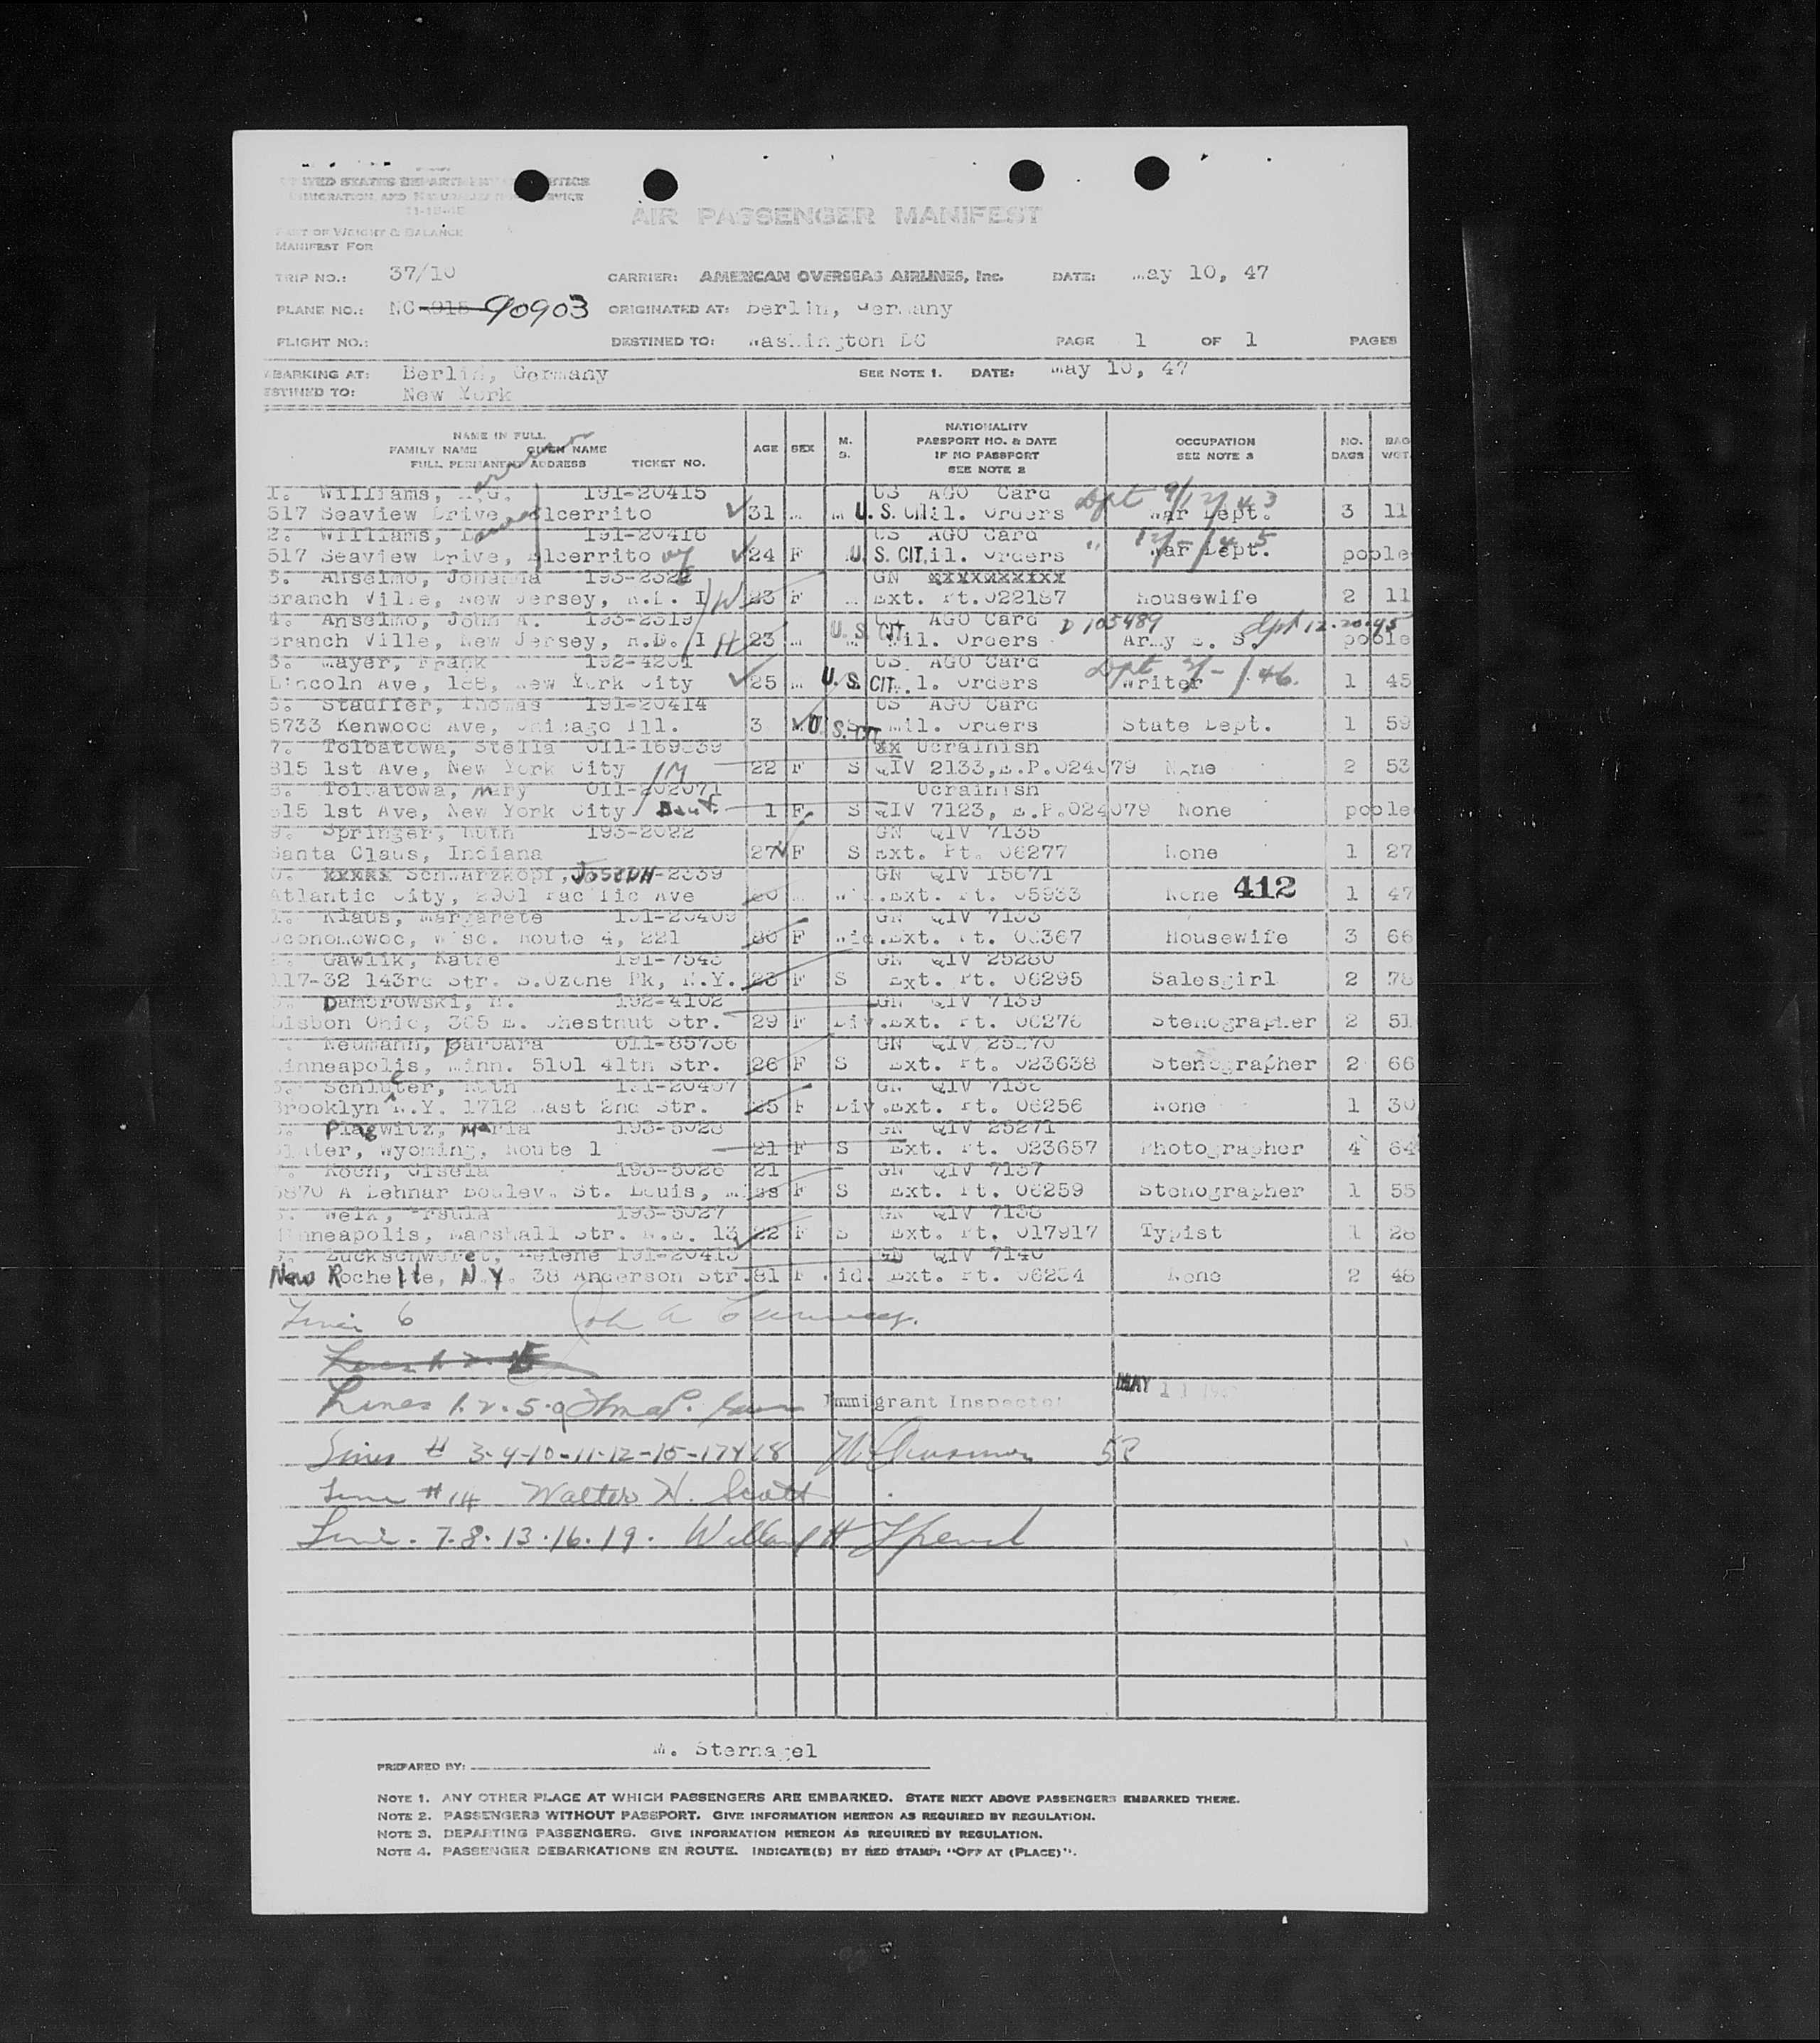 UNITED STATES DEPARTMENT JUSTICE
IMMIGRATION AND NATURALIZATION SERVICE
AIR PASSENGER MANIFEST
PART OF WEIGHT & BALANCE
MANIFEST FOR
TRIP NO.: 37/10 CARRIER: AMERICAN OVERSEAS AIRLINES, Inc. DATE: May 10, 47
PLANE NO.: NC 90903 ORIGINATED AT: Berlin, Germany
FLIGHT NO.: DESTINED TO: Washington DC PAGE 1 OF 1 PAGES
BARKING AT: Berlin, Germany SEE NOTE 1. DATE: May 10, 47
ESTINED TO: New York
NAME IN FULL
FAMILY NAME GIVEN NAME
FULL PERMANENT ADDRESS TICKET NO.
AGE SEX M. S.
NATIONALITY
PASSPORT NO. & DATE
IF NO PASSPORT
SEE NOTE 2
OCCUPATION
SEE NOTE 3
NO. BAGS
BAG WGT.
1. Williams, 191-20415 US AGO Card Dpt
517 Seaview Drive Elcerrito 31 M M U.S. CIT. Mil. Orders War Dept. 3 11
2. Williams, 191-20416 US AGO Card
517 Seaview Drive, Elcerrito 24 F U.S. CIT. Mil. Orders " War Dept. poole
3. Anselmo, Johanna 193-2322 GN xxxxxxxxxx
Branch Ville, New Jersey, R.D. I W 23 F M Ext. Pt.022187 Housewife 2 11
4. Anselmo, John A. 193-2319 AGO Card D 103489 Dpt 12.20.45
Branch Ville, New Jersey, R.D. I H 23 M M U.S. CIT Mil. Orders Army poole
5. Mayer, Frank 192-4201 US AGO Card Dpt
Lincoln Ave, 188, New York City 25 M U.S. CIT. Mil. Orders Writer 1 45
6. Stauffer, Thomas 191-20414 US AGO Card
5733 Kenwood Ave, Chicago Ill. 3 M U.S. CIT Mil. Orders State Dept. 1 59
7. Tolbatowa, Stella 011-169339 xx Ucrainish
315 1st Ave, New York City /M 22 F S QIV 2133,E.P.024079 None 2 53
8. Tolbatowa, Mary 011-202071 Ucrainish
315 1st Ave, New York City / Daut. 1 F S QIV 7123, E.P.024079 None poole
9. Springer, Ruth 193-2022 GN QIV 7135
Santa Claus, Indiana 27 F S Ext. Pt. 06277 None 1 27
0. xxxxx Schwarzkopf, JOSEPH-2339 GN QIV 15671
Atlantic City, 2901 Pacific Ave 60 M Ext. Pt. 05933 None 412 1 47
1. Klaus, Margarete 191-20409 GN QIV 7133
Oconomowoc, Wisc. Route 4, 221 60 F Wid. Ext. Pt. 06367 Housewife 3 66
2. Gawlik, Kathe 191-7543 GN QIV 25280
117-32 143rd Str. S.Ozone Pk, N.Y. 23 F S Ext. Pt. 06295 Salesgirl 2 78
Dambrowski, H. 192-4102 GN QIV 7139
Lisbon Ohio, 365 E. Chestnut Str. 29 F Div. Ext. Pt. 06276 Stenographer 2 51
Neumann, Barbara 011-85736 GN QIV 25270
Minneapolis, Minn. 5101 41th Str. 26 F S Ext. Pt. 023638 Stenographer 2 66
Schlueter, Ruth 191-20407 GN QIV 7136
Brooklyn N.Y. 1712 East 2nd Str. 25 F Div. Ext. Pt. 06256 None 1 30
Plagwitz, Maria 193-5028 GN QIV 25271
Slater, Wyoming, Route 1 21 F S Ext. Pt. 023657 Photographer 4 64
Koch, Gisela 193-5026 21 GN QIV 7137
5870 A Lehnar Boulev. St. Louis, Miss F S Ext. Pt. 06259 Stenographer 1 55
Welk, Ursula 193-5027 GN QIV 7138
Minneapolis, Marshall Str. N.E. 13 22 F S Ext. Pt. 017917 Typist 1 28
Zuckschwerdt, Helene 191-20413 GN QIV 7140
New Rochelle, N.Y. 38 Anderson Str. 81 F Wid. Ext. Pt. 06254 None 2 48
Line 6 John A
Lines 1. 2. 5. 9 Immigrant Inspector MAY 11
Lines # 3-4-10-11-12-15-17 & 18 52
Line # 14 Walter H. Scott
Line. 7.8.13.16.19. Willard H
M. Sternagel
PREPARED BY:
NOTE 1. ANY OTHER PLACE AT WHICH PASSENGERS ARE EMBARKED. STATE NEXT ABOVE PASSENGERS EMBARKED THERE.
NOTE 2. PASSENGERS WITHOUT PASSPORT. GIVE INFORMATION HEREON AS REQUIRED BY REGULATION.
NOTE 3. DEPARTING PASSENGERS. GIVE INFORMATION HEREON AS REQUIRED BY REGULATION.
NOTE 4. PASSENGER DEBARKATIONS EN ROUTE. INDICATE(D) BY RED STAMP: "OFF AT (PLACE)".